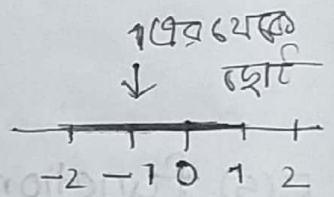 1 এর থেকে
ছোট
-2 -1 0 1 2